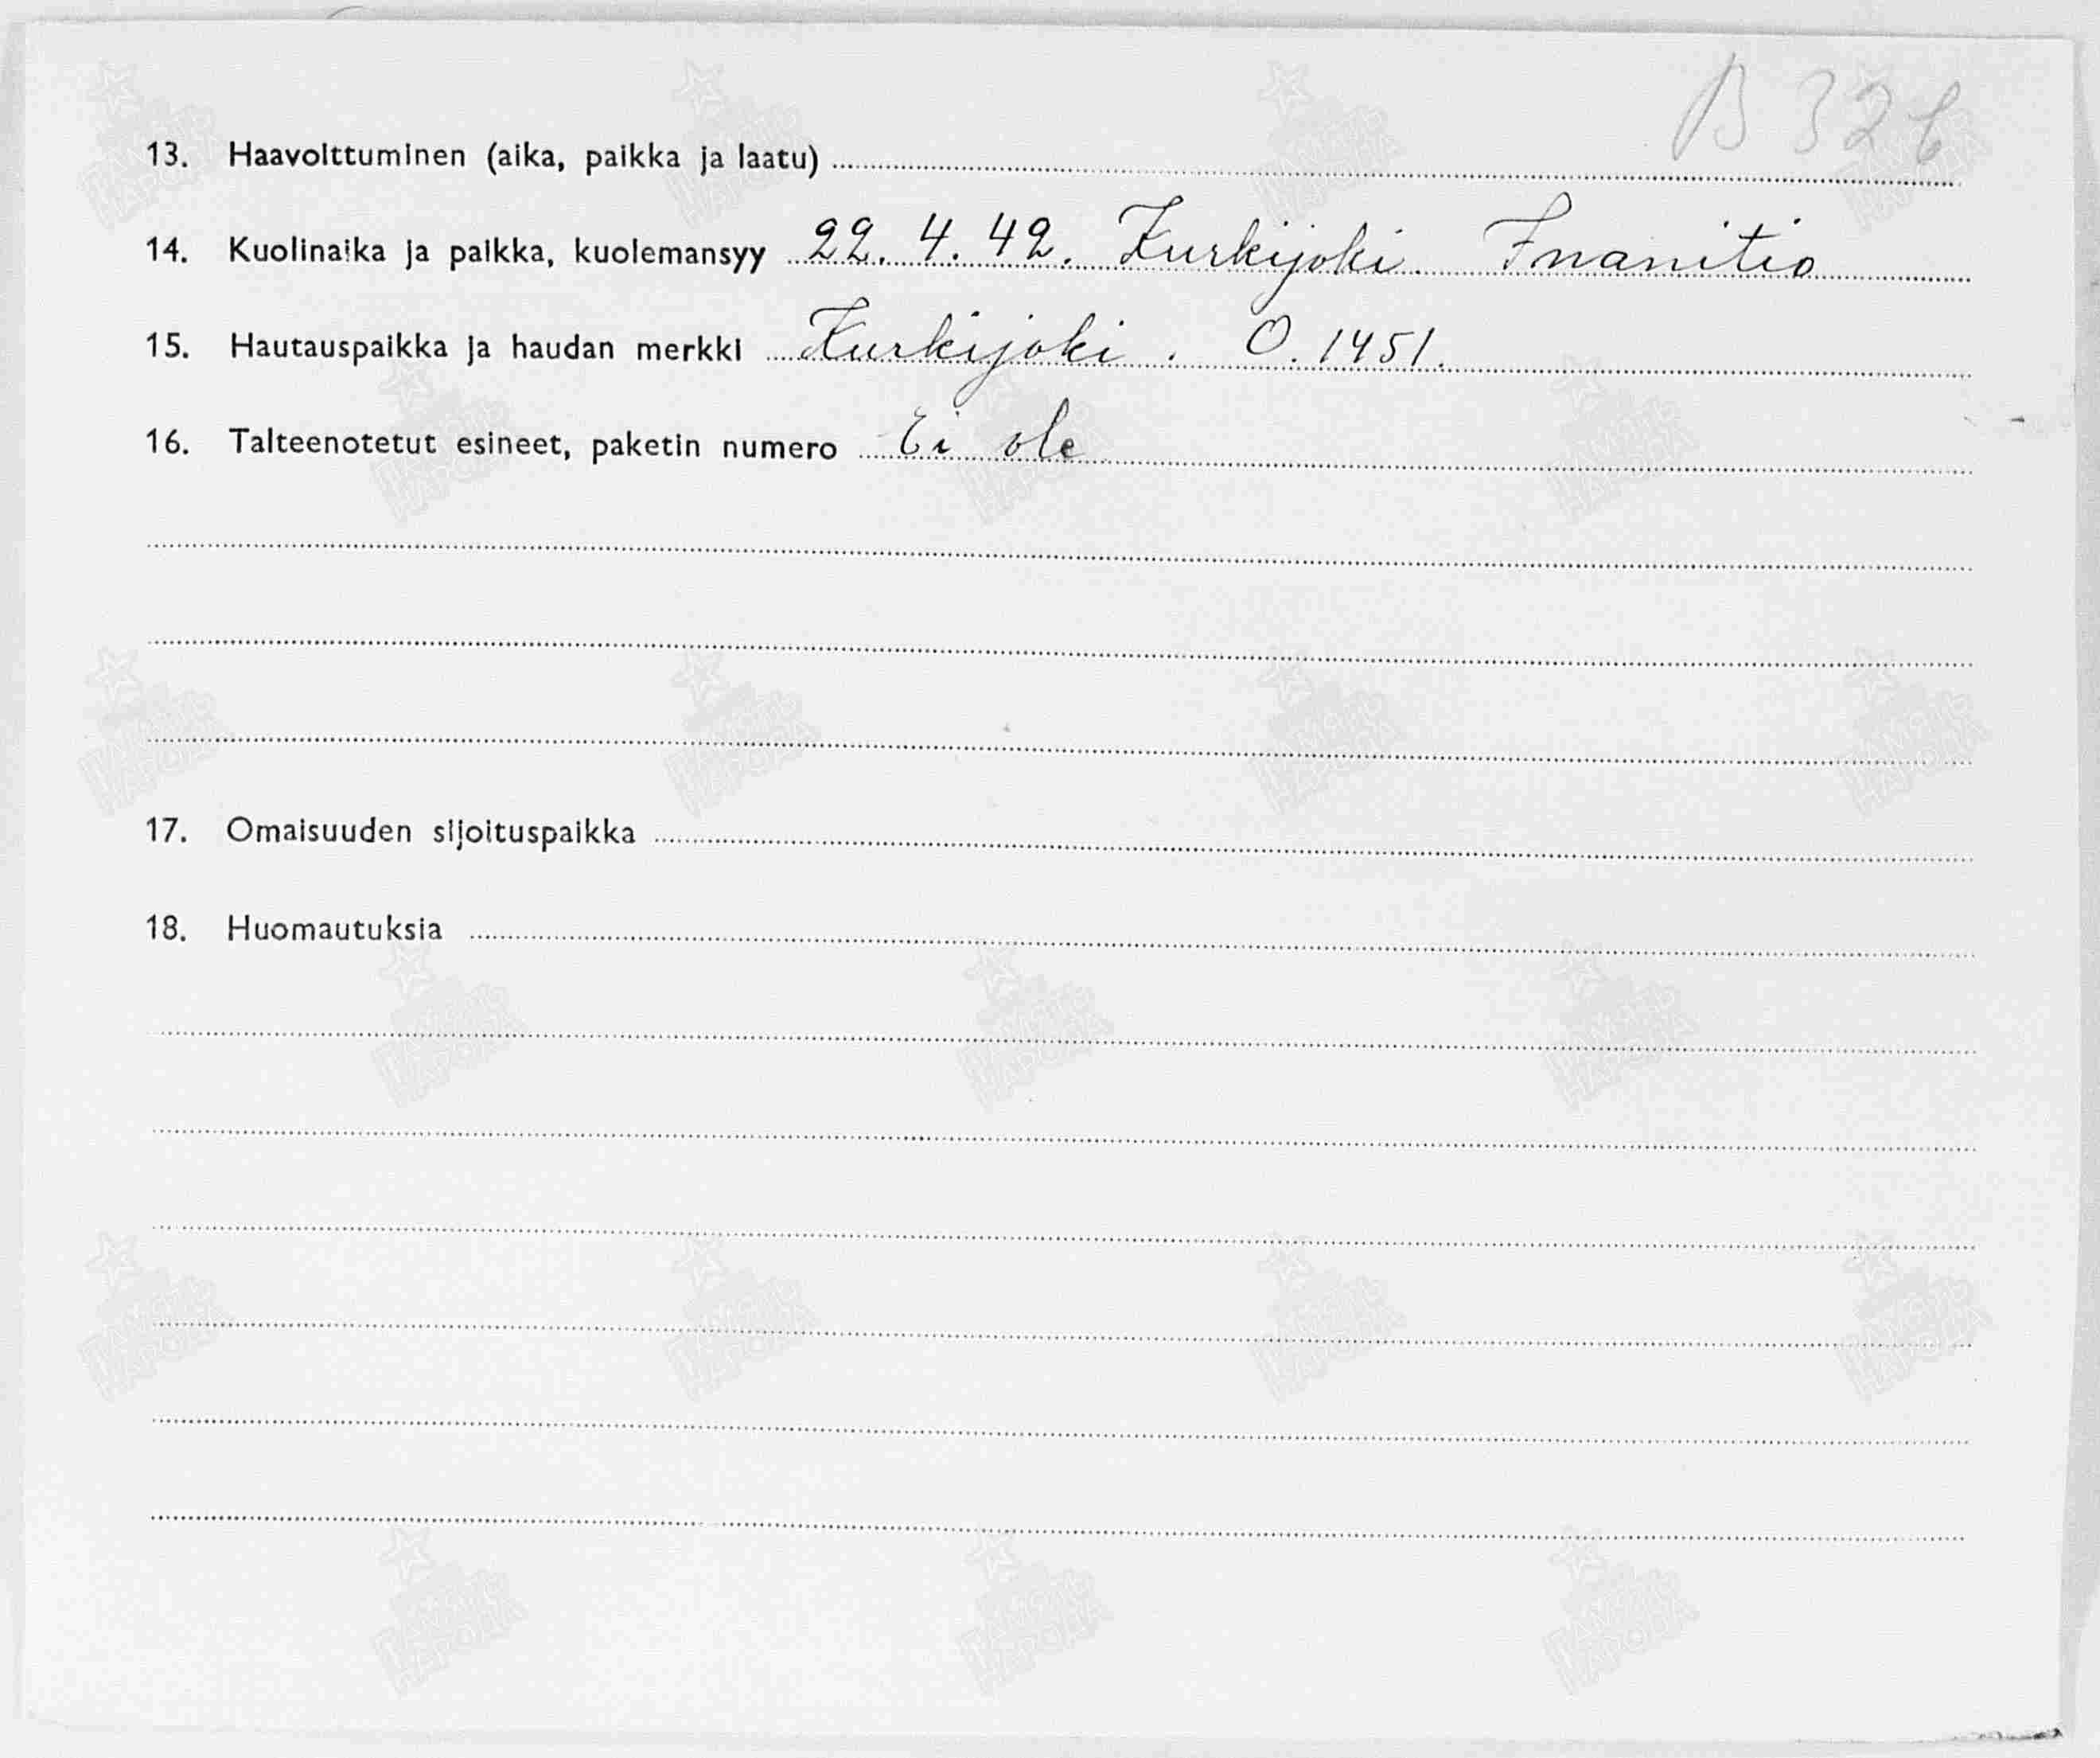 B 326
13. Haavoittuminen (aika, paikka ja laatu)
14. Kuolinaika ja paikka, kuolemansyy 22. 4. 42. Kurkijoki. Inanitio
15. Hautauspaikka ja haudan merkki Kurkijoki. O. 1451.
16. Talteenotetut esineet, paketin numero Ei ole
17. Omaisuuden sijoituspaikka
18. Huomautuksia